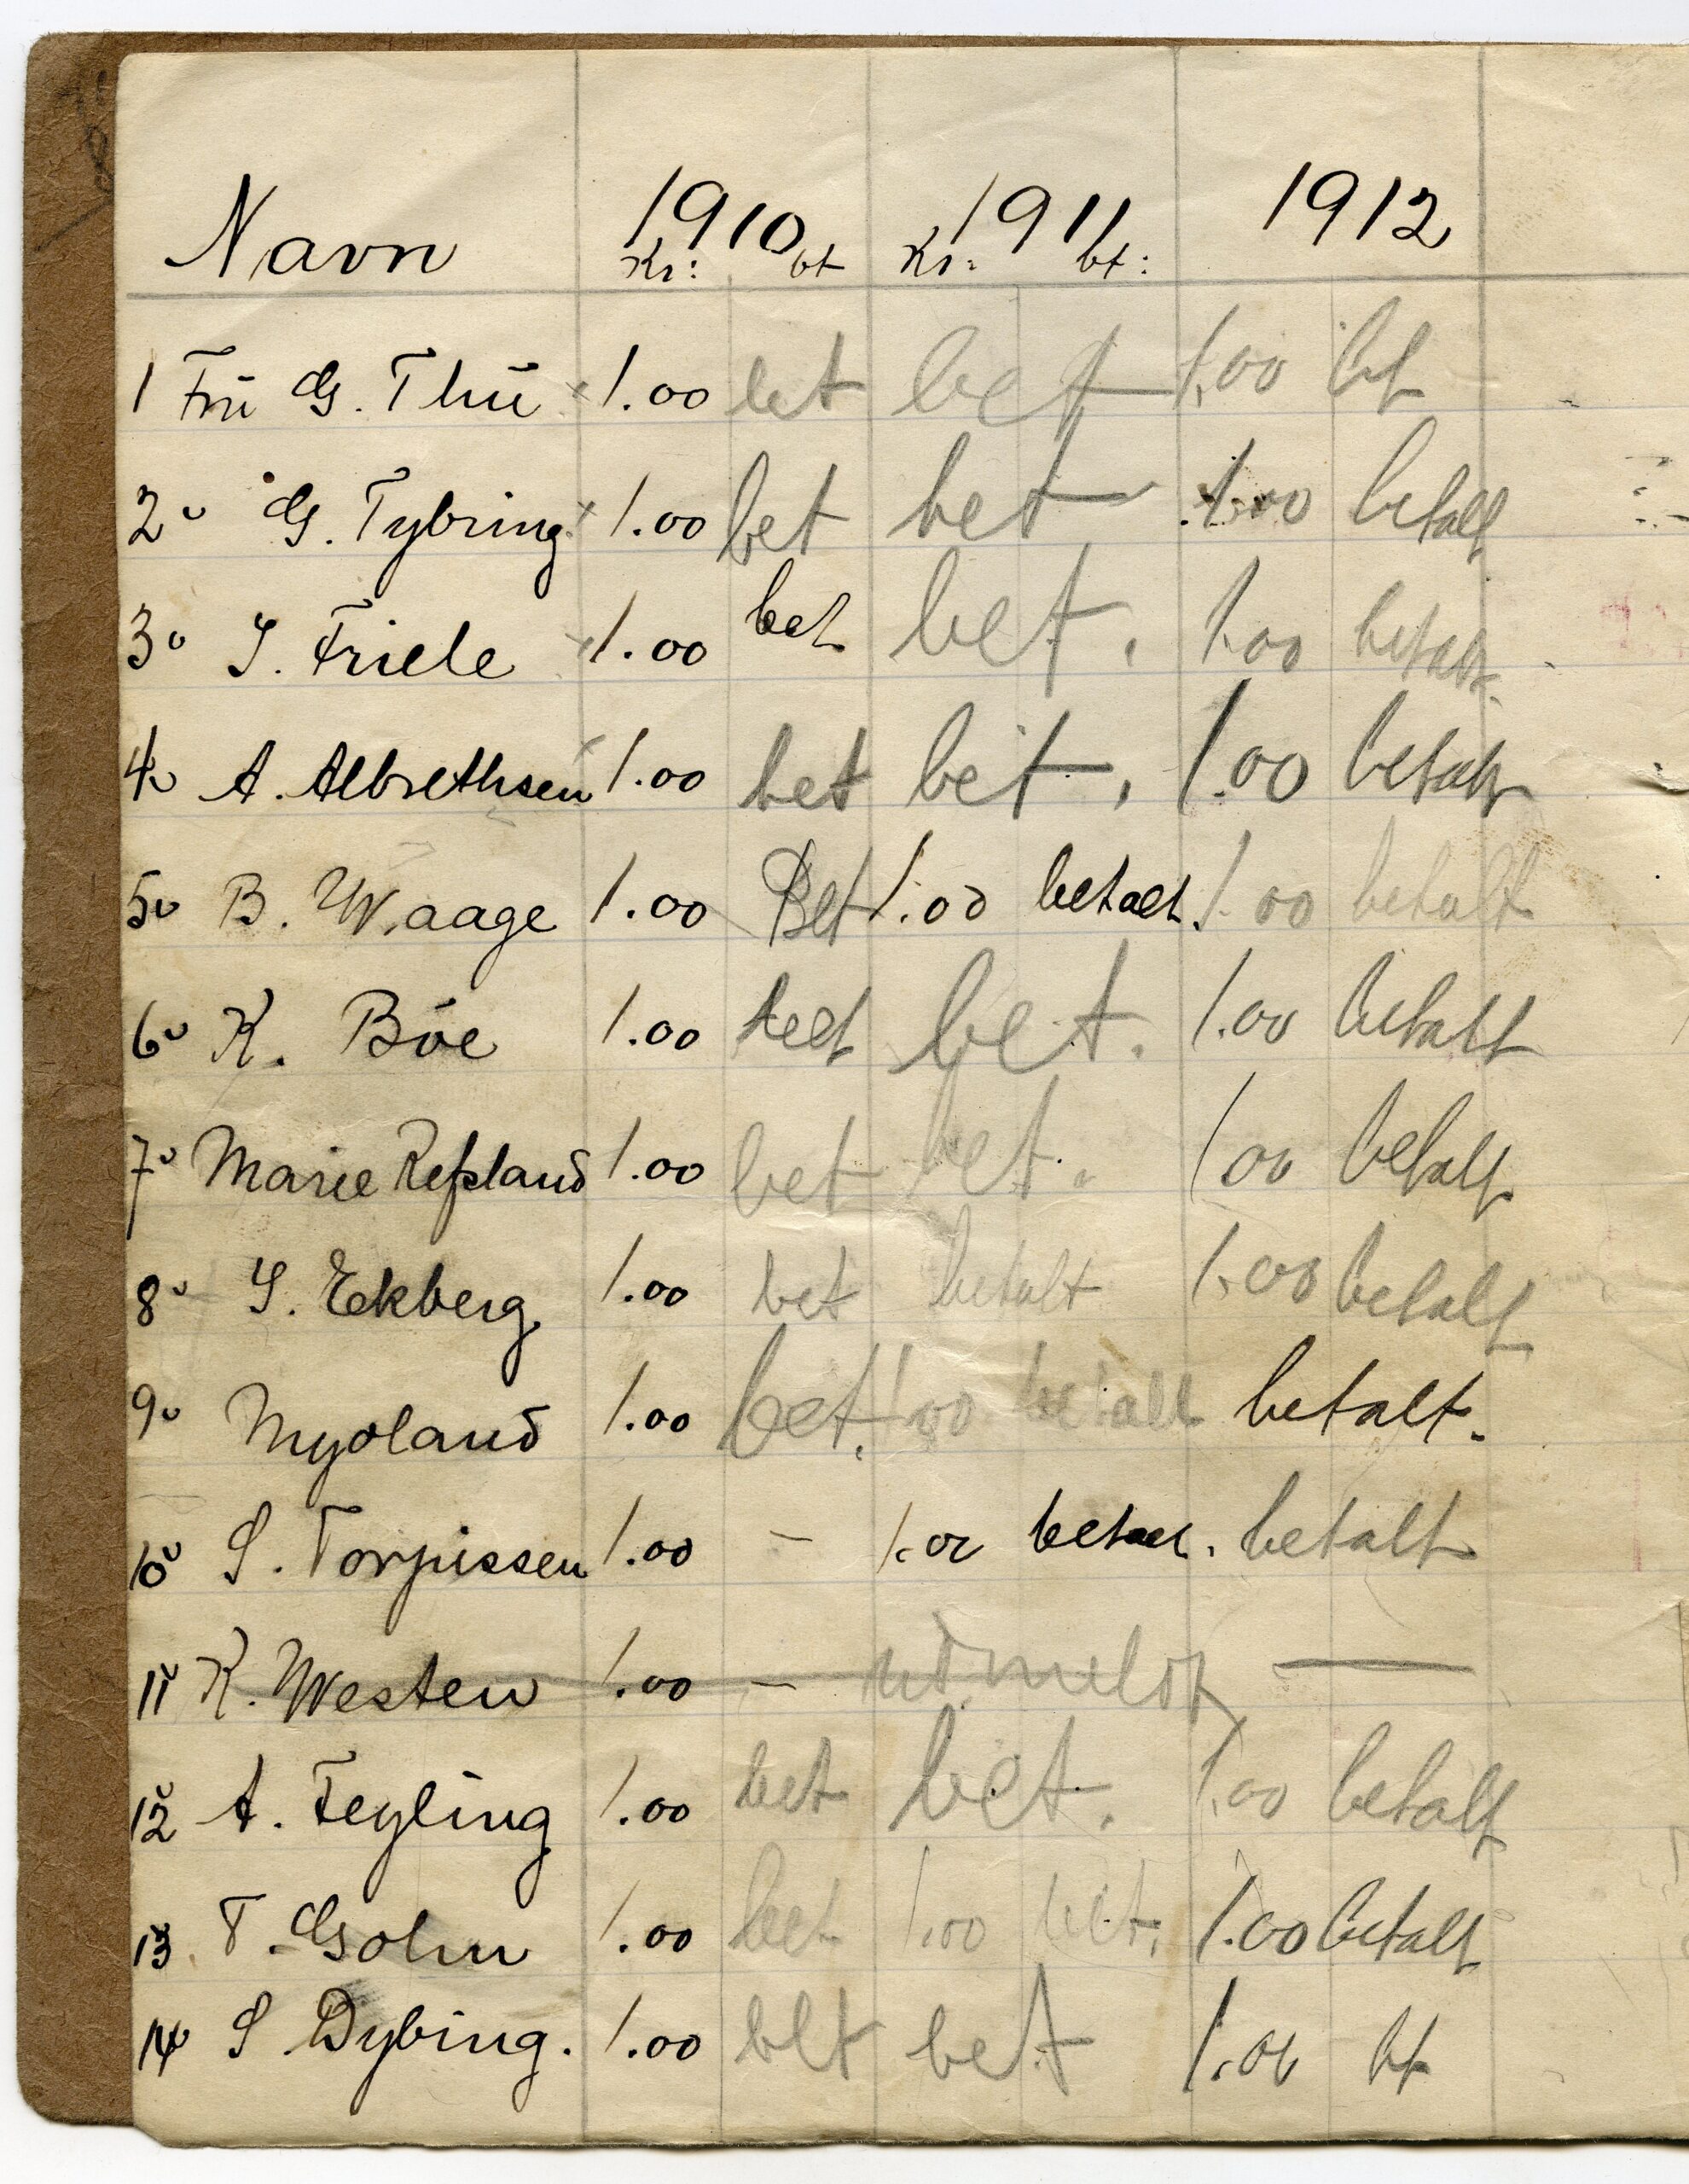 Navn 1910 1911 1912
Kr: bt Kr: bt:
1 Frü G. Thü 1.00 bet bet 1.00 bt
2 " G. Tybring 1.00 bet bet 1.00 betalt
3 " S. Friele 1.00 bet. bet. 1.00 betalt.
4 " A. Albrethsen 1.00 bet bet. 1.00 betalt
5 " B. Waage 1.00 Bet 1.00 betalt. 1.00 betalt
6 " K. Böe 1.00 bet bet. 1.00 betalt
7 " Marie Refsland 1.00 bet bet. 1.00 betalt
8 " S. Ekberg 1.00 bet betalt 1.00 betalt
9 " Nyoland 1.00 bet. 1.00 betalt betalt.
10 " S. Torjussen 1.00 – 1.00 betalt. betalt
11 " K. Westen 1.00 – udmeldt —
12 " A. Feyling 1.00 bet bet. 1.00 betalt
13 " T. Golm 1.00 bet 1.00 bet. 1.00 betalt
14 " S Dybing. 1.00 bet bet 1.00 bt